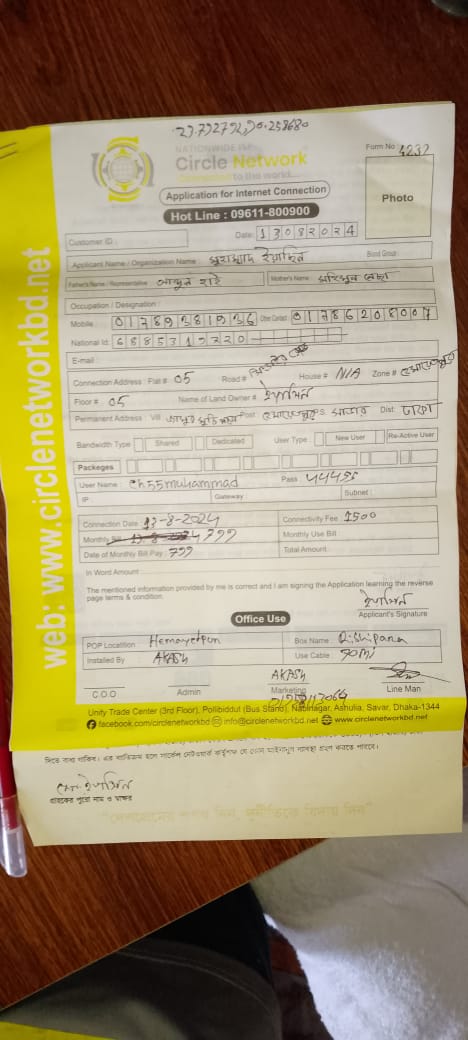 23.792792,90.258680
NATIONWIDE ISP
Circle Network
Connecting to the world...
Form No 4232
Application for Internet Connection
Photo
Hot Line : 09611-800900
Customer ID :
Date: 13082024
Applicant Name / Organization Name : মুহাম্মাদ ইয়াছিন
Blood Group :
Father's Name / Representative : আব্দুল হাই
Mother's Name :
Occupation / Designation :
Mobile : 01789381936 Other Contact : 01786208007
National Id: 6885319220
E-mail :
Connection Address : Flat # 05 Road # House # N/A Zone # হেমায়েতপুর
Floor # 05 Name of Land Owner # ইয়াসিন
Permanent Address Vill Post হেমায়েতপুর P.S সাভার Dist ঢাকা
Bandwidth Type Shared Dedicated User Type : New User Re-Active User
Packages
User Name : Ch55muhammad Pass : 44455
IP : Gateway : Subnet :
Connection Date : 13-8-2024 Connectivity Fee : 1500
Monthly 799 Monthly Use Bill
Date of Monthly Bill Pay : 799 Total Amount :
In Word Amount :
The mentioned information provided by me is correct and I am signing the Application learning the reverse
page terms & condition.
ইয়াসিন
Applicant's Signature
Office Use
POP Location Hemayetpur Box Name : Rishipara
Installed By AKASH Use Cable : 90M
AKASH
C.O.O Admin Marketing Line Man
Unity Trade Center (3rd Floor), Pollibiddut (Bus Stand), Nabinagar, Ashulia, Savar, Dhaka-1344
facebook.com/circlenetworkbd info@circlenetworkbd.net www.circlenetworkbd.net
web: www.circlenetworkbd.net
দিতে বাধ্য থাকিব। এর ব্যতিক্রম হলে সার্কেল নেটওয়ার্ক কর্তৃপক্ষ যে কোন আইনানুগ ব্যবস্থা গ্রহণ করতে পারবে।
মোঃ ইয়াসিন
গ্রাহকের পুরো নাম ও স্বাক্ষর